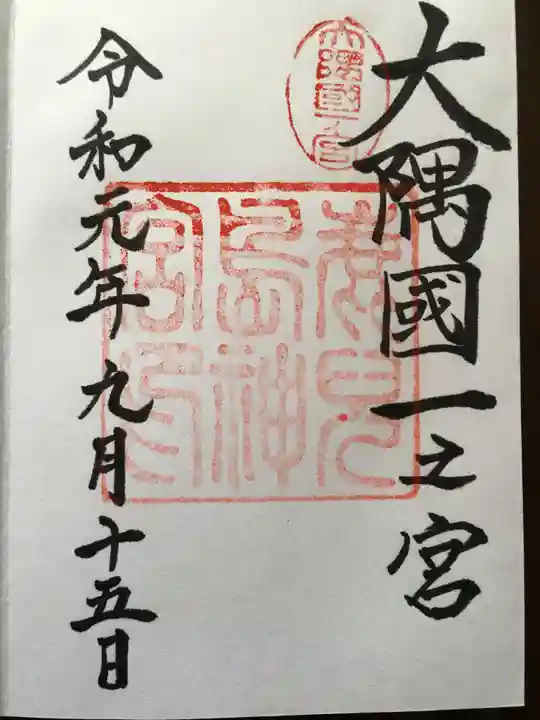 大隅國一之宮
大隅國一宮
鹿兒島神宮印
令和元年九月十五日